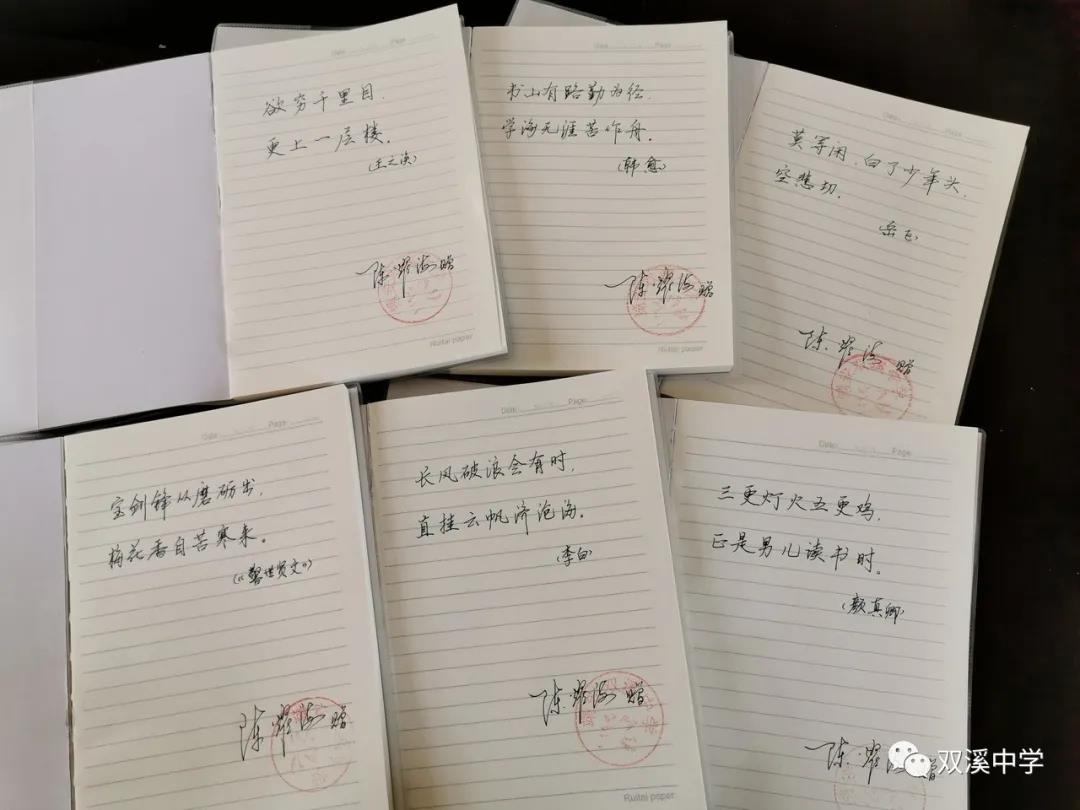 Date Page
欲穷千里目,
更上一层楼.
(王之涣)
陈耀海 赠
Ruitai paper
Date Page
书山有路勤为径,
学海无涯苦作舟.
(韩愈)
陈耀海 赠
Ruitai paper
Date Page
莫等闲,白了少年头,
空悲切.
岳飞
陈耀海 赠
Date Page
宝剑锋从磨砺出,
梅花香自苦寒来。
(《警世贤文》)
陈耀海 赠
Date Page
长风破浪会有时,
直挂云帆济沧海.
(李白)
陈耀海 赠
Ruitai paper
Date Page
三更灯火五更鸡,
正是男儿读书时.
(颜真卿)
陈耀海 赠
双溪中学